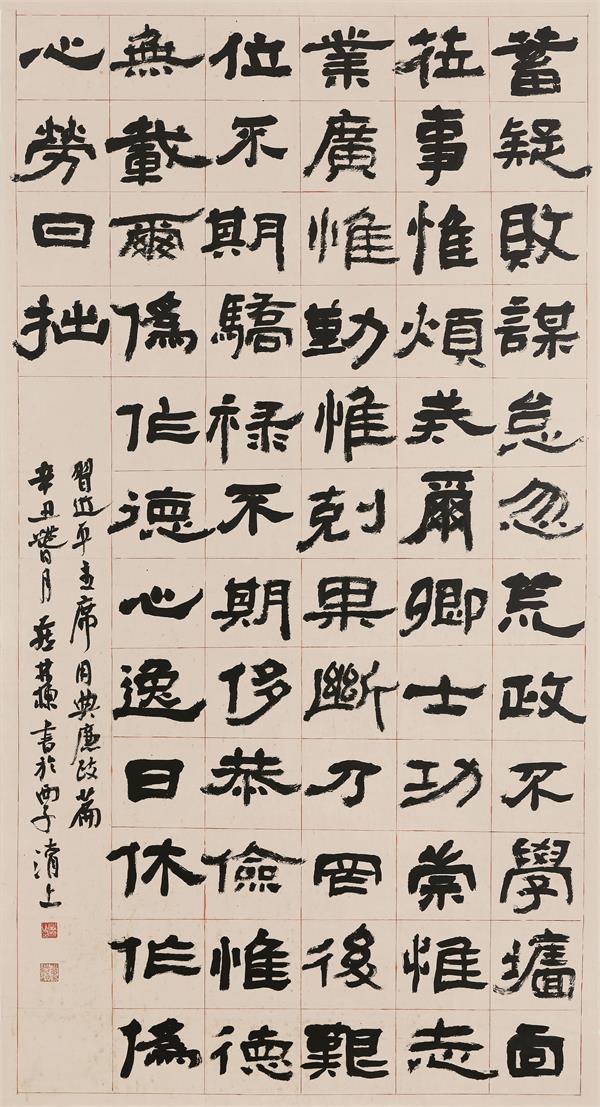 蓄疑敗謀怠忽荒政不學墻面
莅事惟煩戒爾卿士功崇惟志
業廣惟勤惟剋果斷乃罔後艱
位不期驕禄不期侈恭儉惟德
無載爾僞作德心逸日休作僞
心勞日拙
習近平主席用典廉政篇
辛丑月書於西子湖上